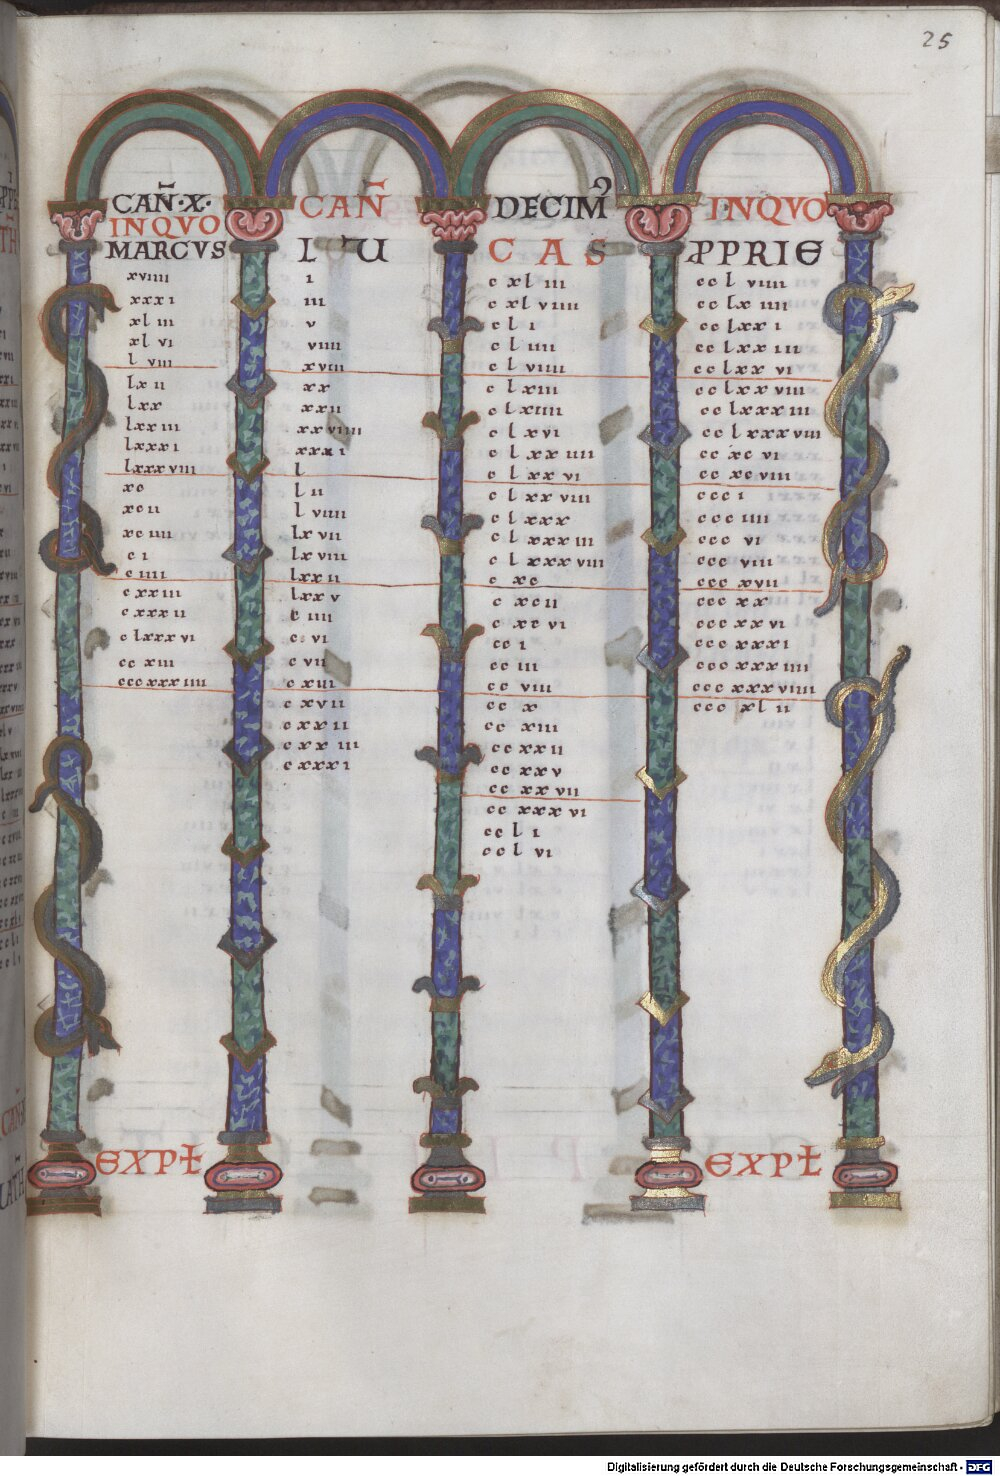 25
CAÑ·X·
INQVO
MARCVS
xviiii
xxxi
xliii
xlvi
lviii
lxii
lxx
lxxiii
lxxxi
lxxxviii
xc
xcii
xciiii
ci
ciiii
cxxiii
cxxxii
clxxxvi
ccxiii
cccxxxiiii
EXPŁ
CAÑ
LU
i
iii
v
viiii
xviii
xx
xxii
xxviiii
xxxi
l
lii
lviiii
lxvii
lxviii
lxxii
lxxv
ciiii
cvi
cvii
cxiii
cxvii
cxxii
cxxiii
cxxxi
DECIM
CAS
cxliii
cxlviiii
cli
cliiii
clviiii
clxiii
clxiiii
clxvi
clxxiiii
clxxvi
clxxviii
clxxx
clxxxiii
clxxxviii
cxc
cxcii
cxcvi
cci
cciii
ccviii
ccx
ccxiii
ccxxii
ccxxv
ccxxvii
ccxxxvi
ccli
cclvi
INQVO
PPRIE
cclviiii
cclxiiii
cclxxi
cclxxiii
cclxxvi
cclxxviii
cclxxxiii
cclxxxviii
ccxcvi
ccxcviii
ccci
ccciiii
cccvi
cccviii
cccxvii
cccxx
cccxxvi
cccxxxi
cccxxxiiii
cccxxxviiii
cccxlii
EXPŁ
Digitalisierung gefördert durch die Deutsche Forschungsgemeinschaft - DFG